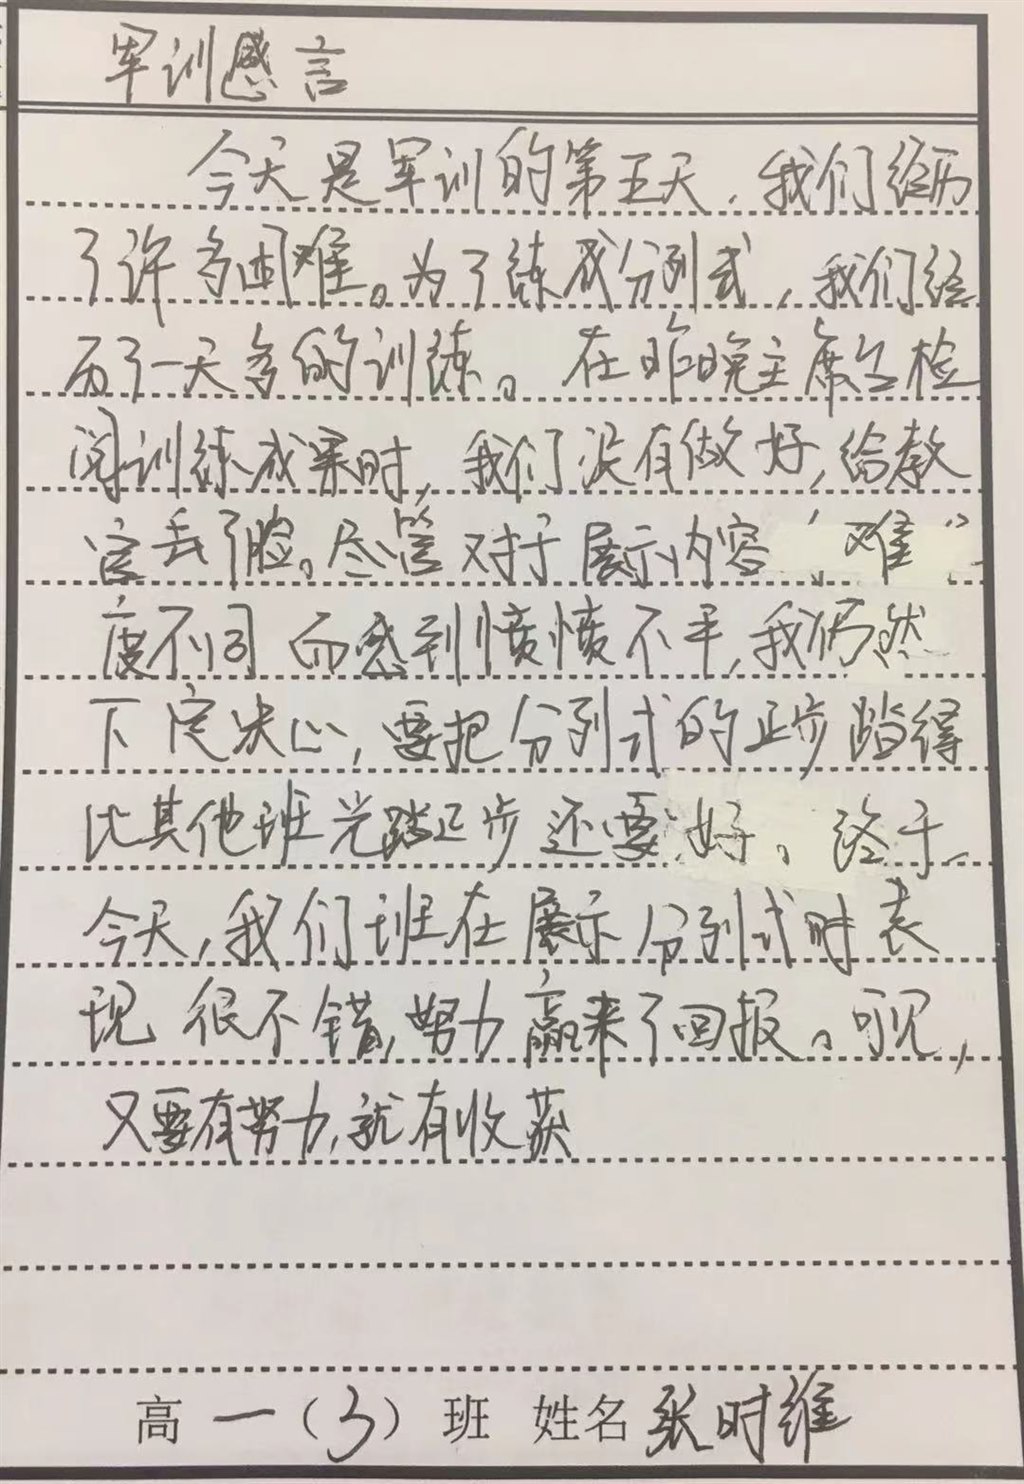 军训感言
今天是军训的第五天，我们经历
了许多困难。为了练成分列式，我们经
历了一天多的训练。在昨晚主席台检
阅训练成果时，我们没有做好，给教
官丢了脸。尽管对于展示内容“难”
度不同而感到愤愤不平，我仍然
下定决心，要把分列式的正步踏得
比其他班光踏正步还要好。终于，
今天，我们班在展示分列式时表
现很不错，努力赢来了回报。可见，
又要有努力，就有收获
高一（3）班 姓名 张时维